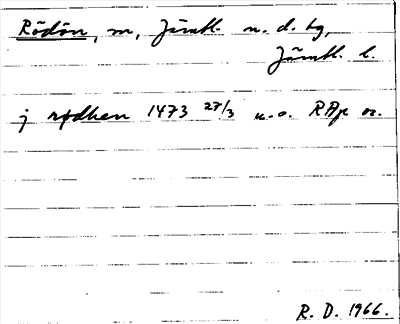 Rödön, sn, Jämtl. n. d. tg,
Jämtl. l.
j rødhen 1473 27/3 u.o. RAp or.
R. D. 1966.